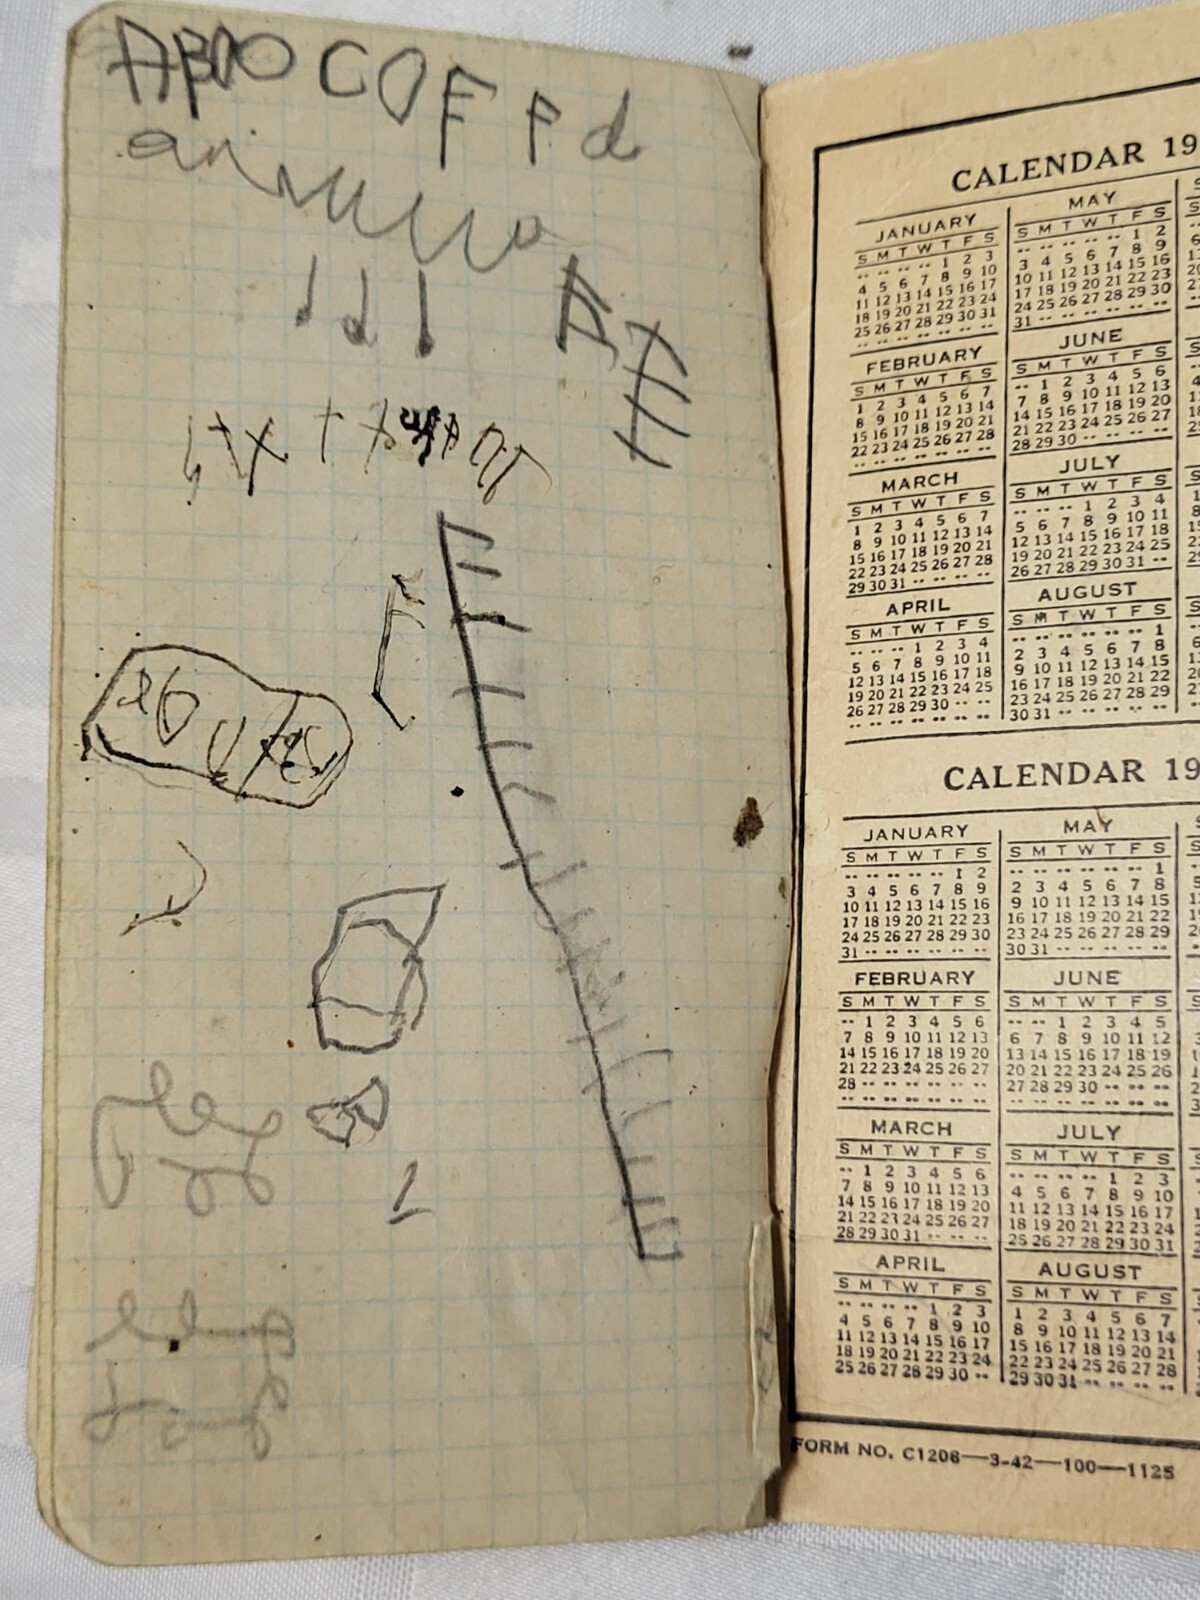 C O F F d
CALENDAR 19
JANUARY
S M T W T F S
1 2 3
4 5 6 7 8 9 10
11 12 13 14 15 16 17
18 19 20 21 22 23 24
25 26 27 28 29 30 31
FEBRUARY
S M T W T F S
1 2 3 4 5 6 7
8 9 10 11 12 13 14
15 16 17 18 19 20 21
22 23 24 25 26 27 28
MARCH
S M T W T F S
1 2 3 4 5 6 7
8 9 10 11 12 13 14
15 16 17 18 19 20 21
22 23 24 25 26 27 28
29 30 31
APRIL
S M T W T F S
1 2 3 4
5 6 7 8 9 10 11
12 13 14 15 16 17 18
19 20 21 22 23 24 25
26 27 28 29 30
MAY
S M T W T F S
1 2
3 4 5 6 7 8 9
10 11 12 13 14 15 16
17 18 19 20 21 22 23
24 25 26 27 28 29 30
31
JUNE
S M T W T F S
1 2 3 4 5 6
7 8 9 10 11 12 13
14 15 16 17 18 19 20
21 22 23 24 25 26 27
28 29 30
JULY
S M T W T F S
1 2 3 4
5 6 7 8 9 10 11
12 13 14 15 16 17 18
19 20 21 22 23 24 25
26 27 28 29 30 31
AUGUST
S M T W T F S
1
2 3 4 5 6 7 8
9 10 11 12 13 14 15
16 17 18 19 20 21 22
23 24 25 26 27 28 29
30 31
CALENDAR 19
JANUARY
S M T W T F S
1 2
3 4 5 6 7 8 9
10 11 12 13 14 15 16
17 18 19 20 21 22 23
24 25 26 27 28 29 30
31
FEBRUARY
S M T W T F S
1 2 3 4 5 6
7 8 9 10 11 12 13
14 15 16 17 18 19 20
21 22 23 24 25 26 27
28
MARCH
S M T W T F S
1 2 3 4 5 6
7 8 9 10 11 12 13
14 15 16 17 18 19 20
21 22 23 24 25 26 27
28 29 30 31
APRIL
S M T W T F S
1 2 3
4 5 6 7 8 9 10
11 12 13 14 15 16 17
18 19 20 21 22 23 24
25 26 27 28 29 30
MAY
S M T W T F S
1
2 3 4 5 6 7 8
9 10 11 12 13 14 15
16 17 18 19 20 21 22
23 24 25 26 27 28 29
30 31
JUNE
S M T W T F S
1 2 3 4 5
6 7 8 9 10 11 12
13 14 15 16 17 18 19
20 21 22 23 24 25 26
27 28 29 30
JULY
S M T W T F S
1 2 3
4 5 6 7 8 9 10
11 12 13 14 15 16 17
18 19 20 21 22 23 24
25 26 27 28 29 30 31
AUGUST
S M T W T F S
1 2 3 4 5 6 7
8 9 10 11 12 13 14
15 16 17 18 19 20 21
22 23 24 25 26 27 28
29 30 31
FORM NO. C1206—3-42—100—1125